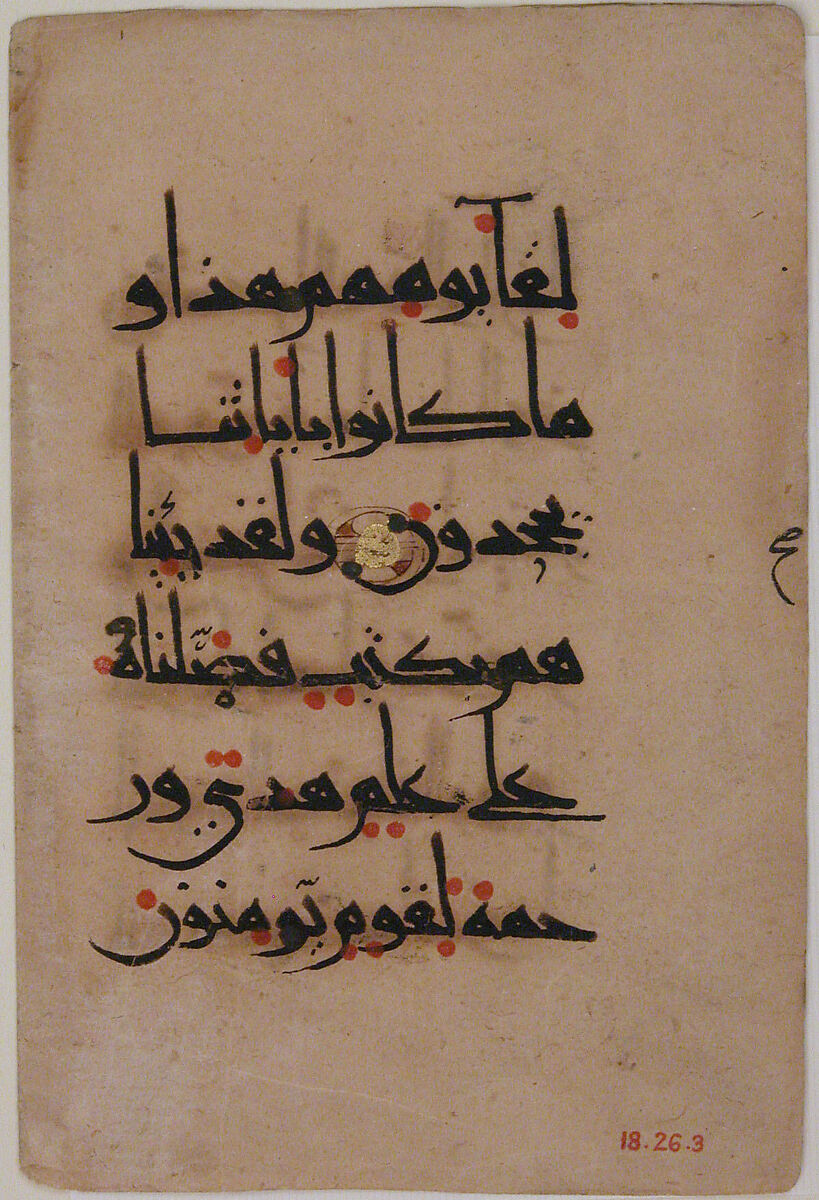 لقآ يومهم هذا و
ما كانوا بايا تنا
يجحدون ولقد جئنا
هم بكتب فصّلناه
على علم هدى ور
حمة لقوم يّومنون
ع
18.26.3